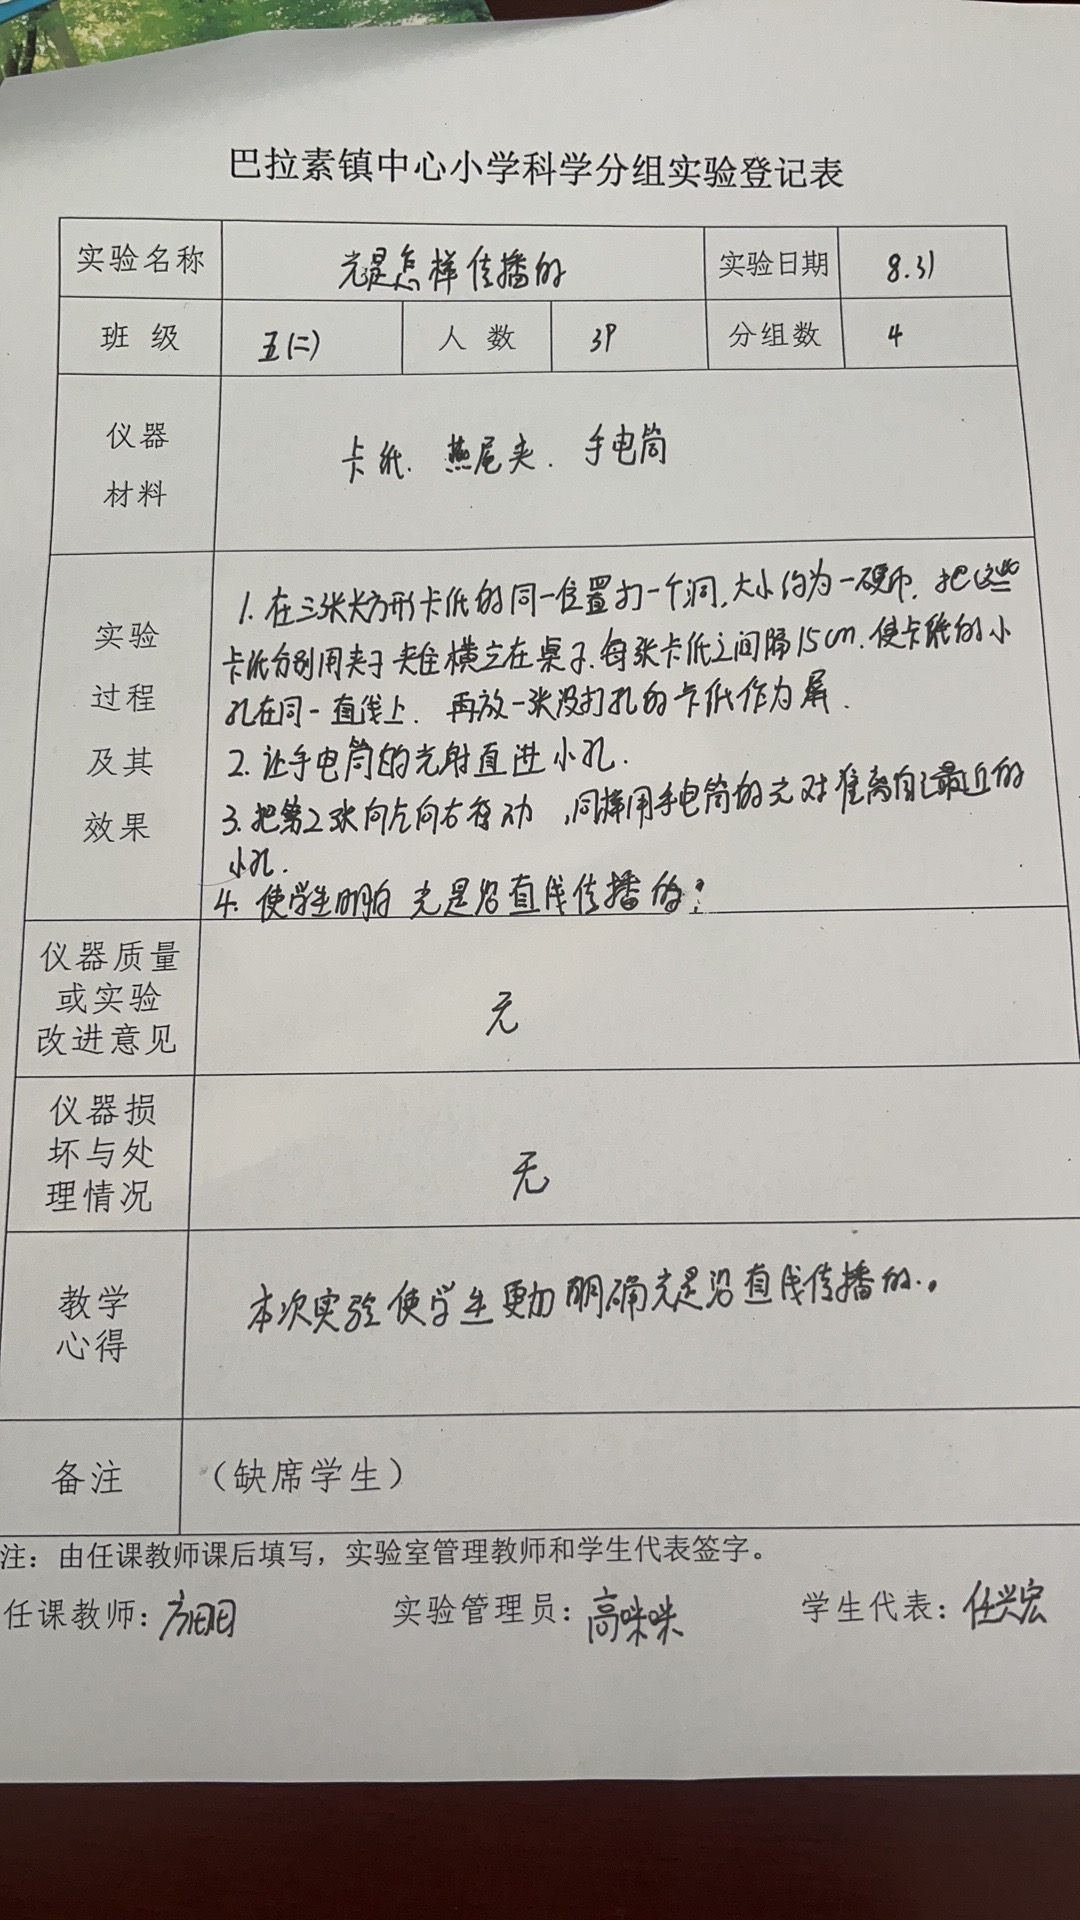 巴拉素镇中心小学科学分组实验登记表
实验名称 光是怎样传播的 实验日期 8.31
班 级 五(二) 人 数 39 分组数 4
仪器
材料
卡纸. 燕尾夹. 手电筒
实验
过程
及其
效果
1. 在三张长方形卡纸的同一位置打一个洞,大小约为一硬币. 把这些
卡纸分别用夹子夹住横立在桌子.每张卡纸之间隔15cm.使卡纸的小
孔在同一直线上. 再放一张没打孔的卡纸作为屏.
2. 让手电筒的光射直进小孔.
3. 把第2张向左向右移动,同样用手电筒的光对准离自己最近的
小孔.
4. 使学生明白 光是沿直线传播的
仪器质量
或实验
改进意见
无
仪器损
坏与处
理情况
无
教学
心得
本次实验使学生更加明确光是沿直线传播的.
备注 (缺席学生)
注：由任课教师课后填写，实验室管理教师和学生代表签字。
任课教师: 实验管理员: 高咪咪 学生代表: 任兴宏